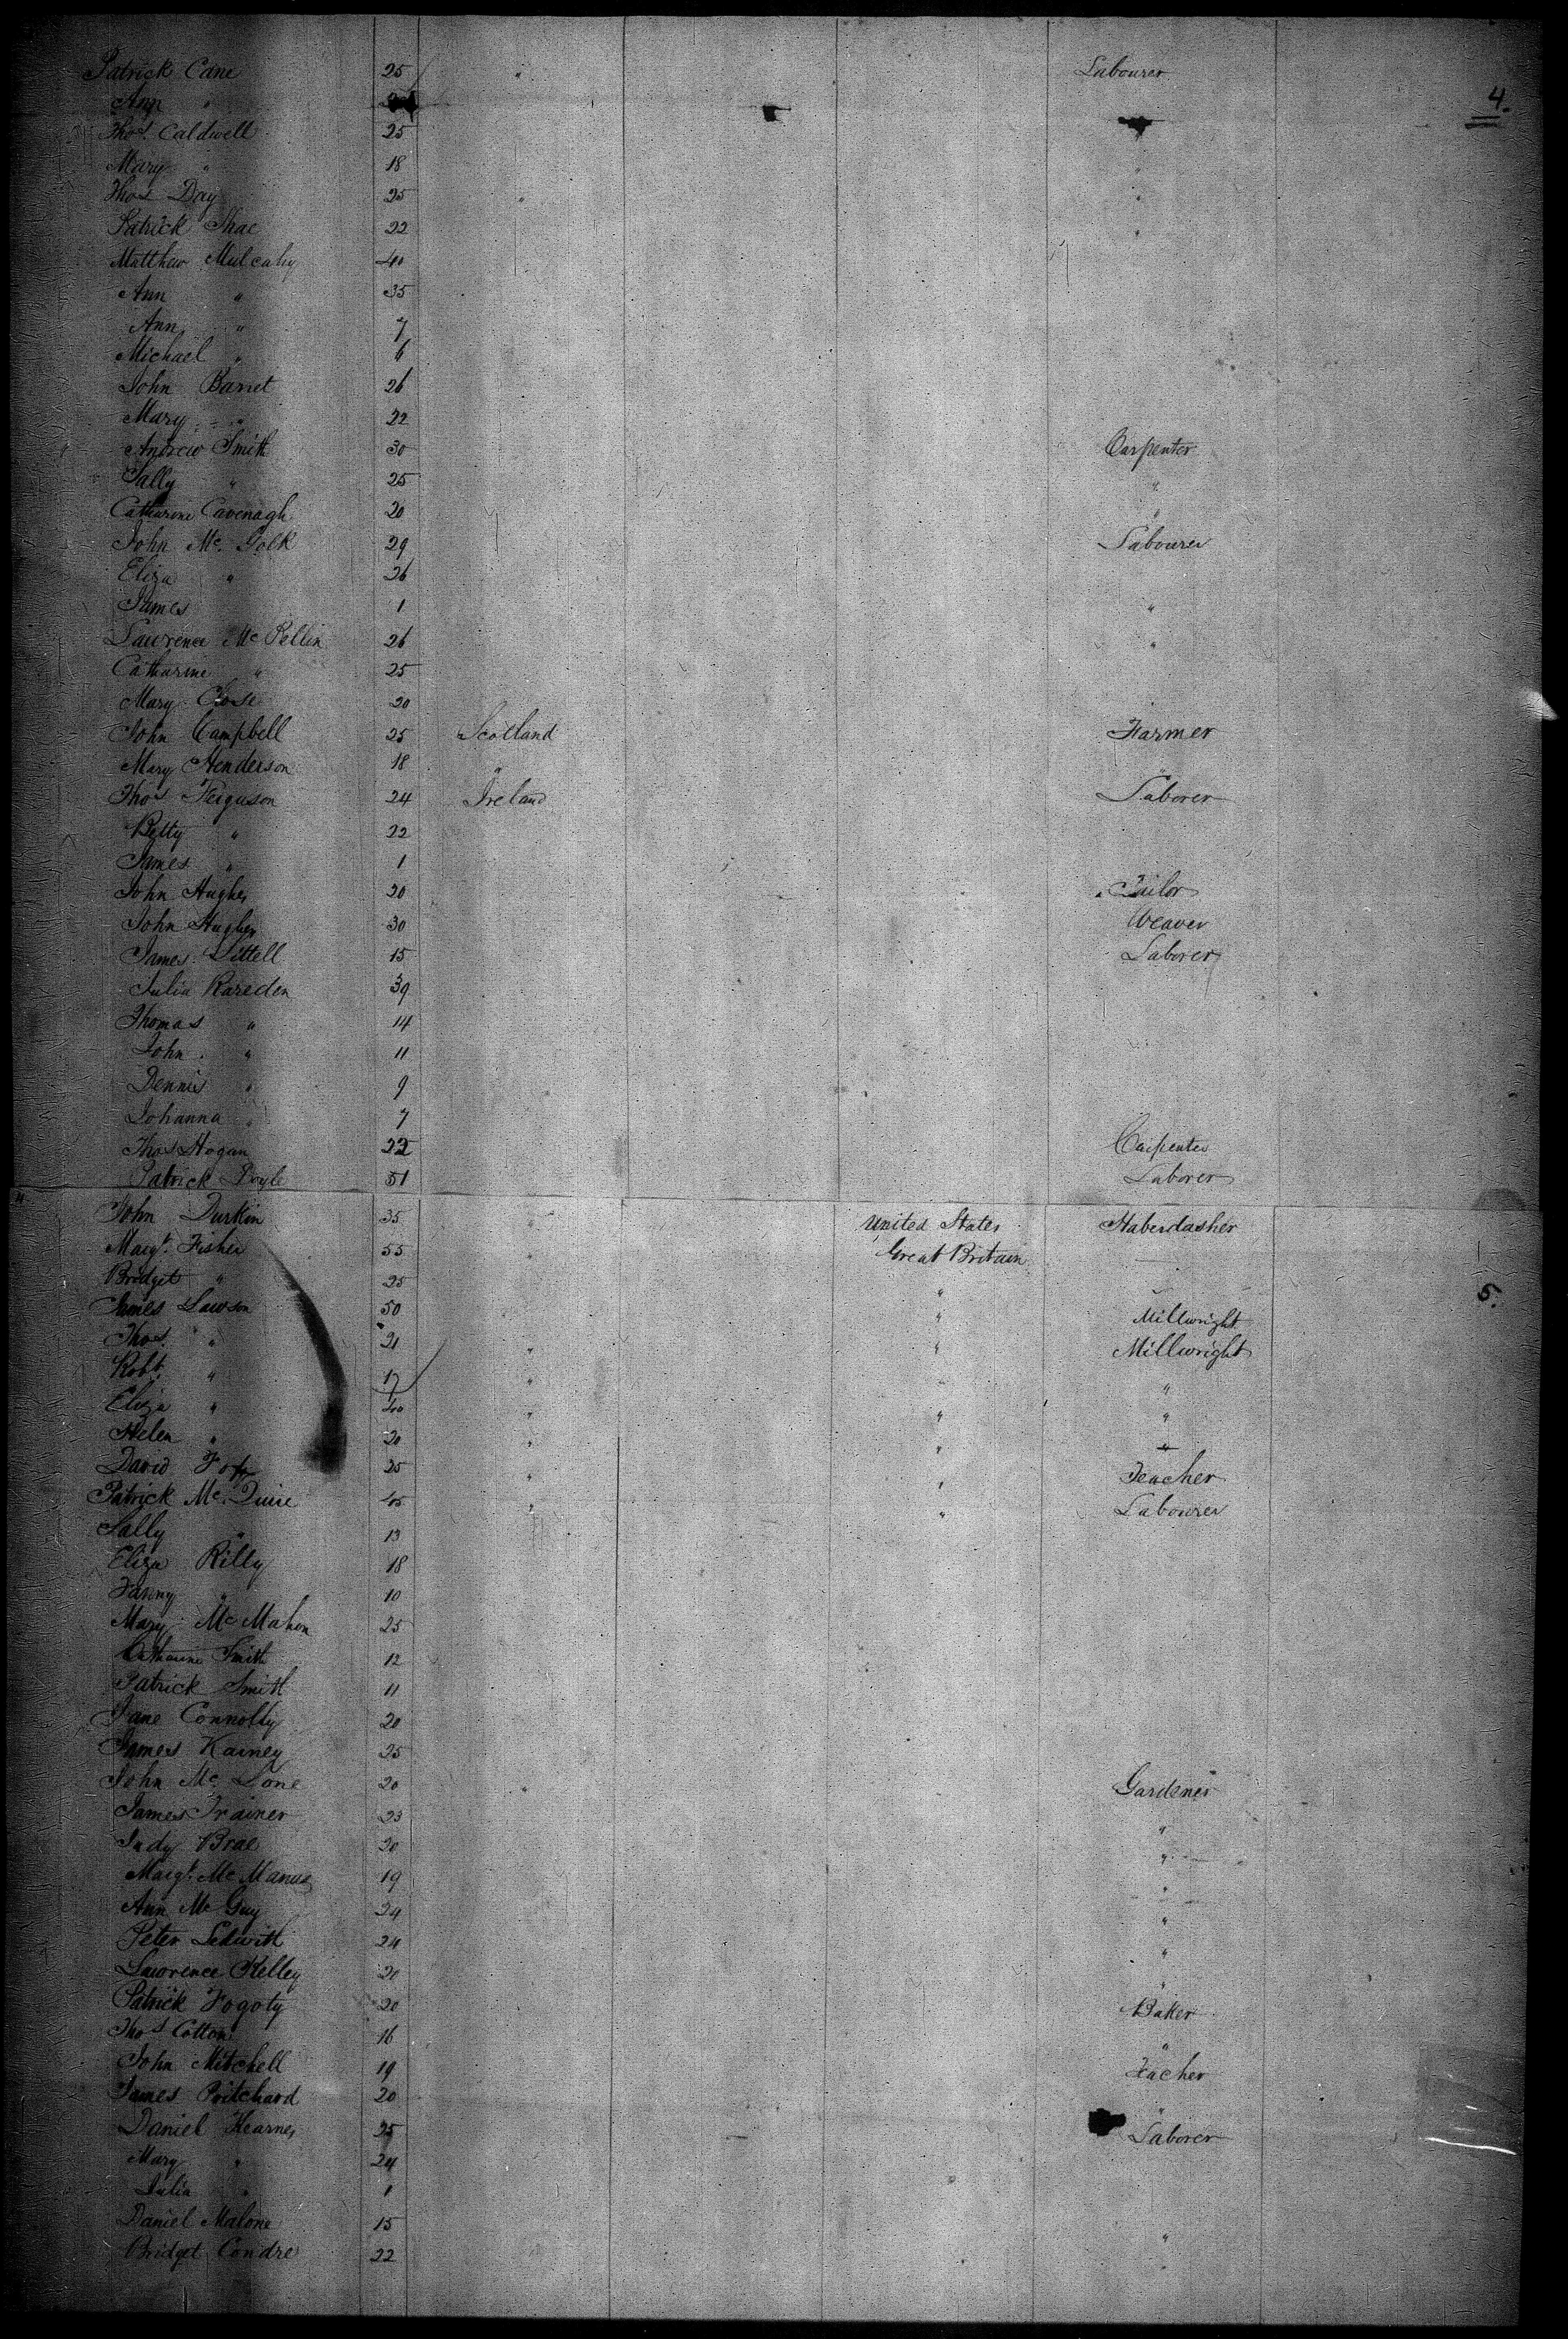 Patrick Cane 25 " Labourer
Ann " 4.
Thos. Caldwell 25
Mary " 18 "
Thos Day 25 " "
Patrick Shae 22 "
Matthew Mulcahy 40
Ann " 35
Ann " 7
Michael " 6
John Barret 26
Mary " 22
Andrew Smith 30 Carpenter
Sally " 25 "
Catharine Cavenagh 20 "
John Mc. Golk 29 Labourer
Eliza " 26
James 1 "
Lawrence Mc Pellin 26 "
Catharine " 25
Mary Close 20
John Campbell 25 Scotland Farmer
Mary Henderson 18 " "
Thos Ferguson 24 Ireland Laborer
Betty " 22
James " 1
John Hughes 20 Tailor
John Hughes 30 Weaver
James Littell 15 Laborer
Julia Rareden 39
Thomas " 14
John " 11
Dennis " 9
Johanna " 7
Thos Hogan 22 Carpenter
Patrick Boyle 51 Laborer
John Durkin 35 " United States Haberdasher
Margt. Fisher 55 " Great Britain
Bridget " 25 " 5.
James Lawson 50 " Millwright
Thos. " 21 " " Millwright
Robt. " 17 " " "
Eliza " 40 " " "
Helen " 20 " " "
David 25 " " Teacher
Patrick Mc. Quire 45 " " Labourer
Sally " 13
Eliza Rilly 18
Fanny " 10
Mary Mc Mahon 25
Catharine Smith 12
Patrick Smith 11
Jane Connolly 20
James Kainey 25
John Mc. Lone 20 Gardener
James Trainer 23 "
Judy Brae 20 "
Margt. Mc Manus 19 "
Ann Mc Guy 24 "
Peter Ledwith 24 "
Lawrence Kelley 20 "
Patrick Fogoty 20 Baker
Thos Cotton 16 "
John Mitchell 19 Teacher
James Pritchard 20 "
Daniel Kearnes 25 Laborer
Mary " 24
Julia " 1
Daniel Malone 15 "
Bridget Condre 22